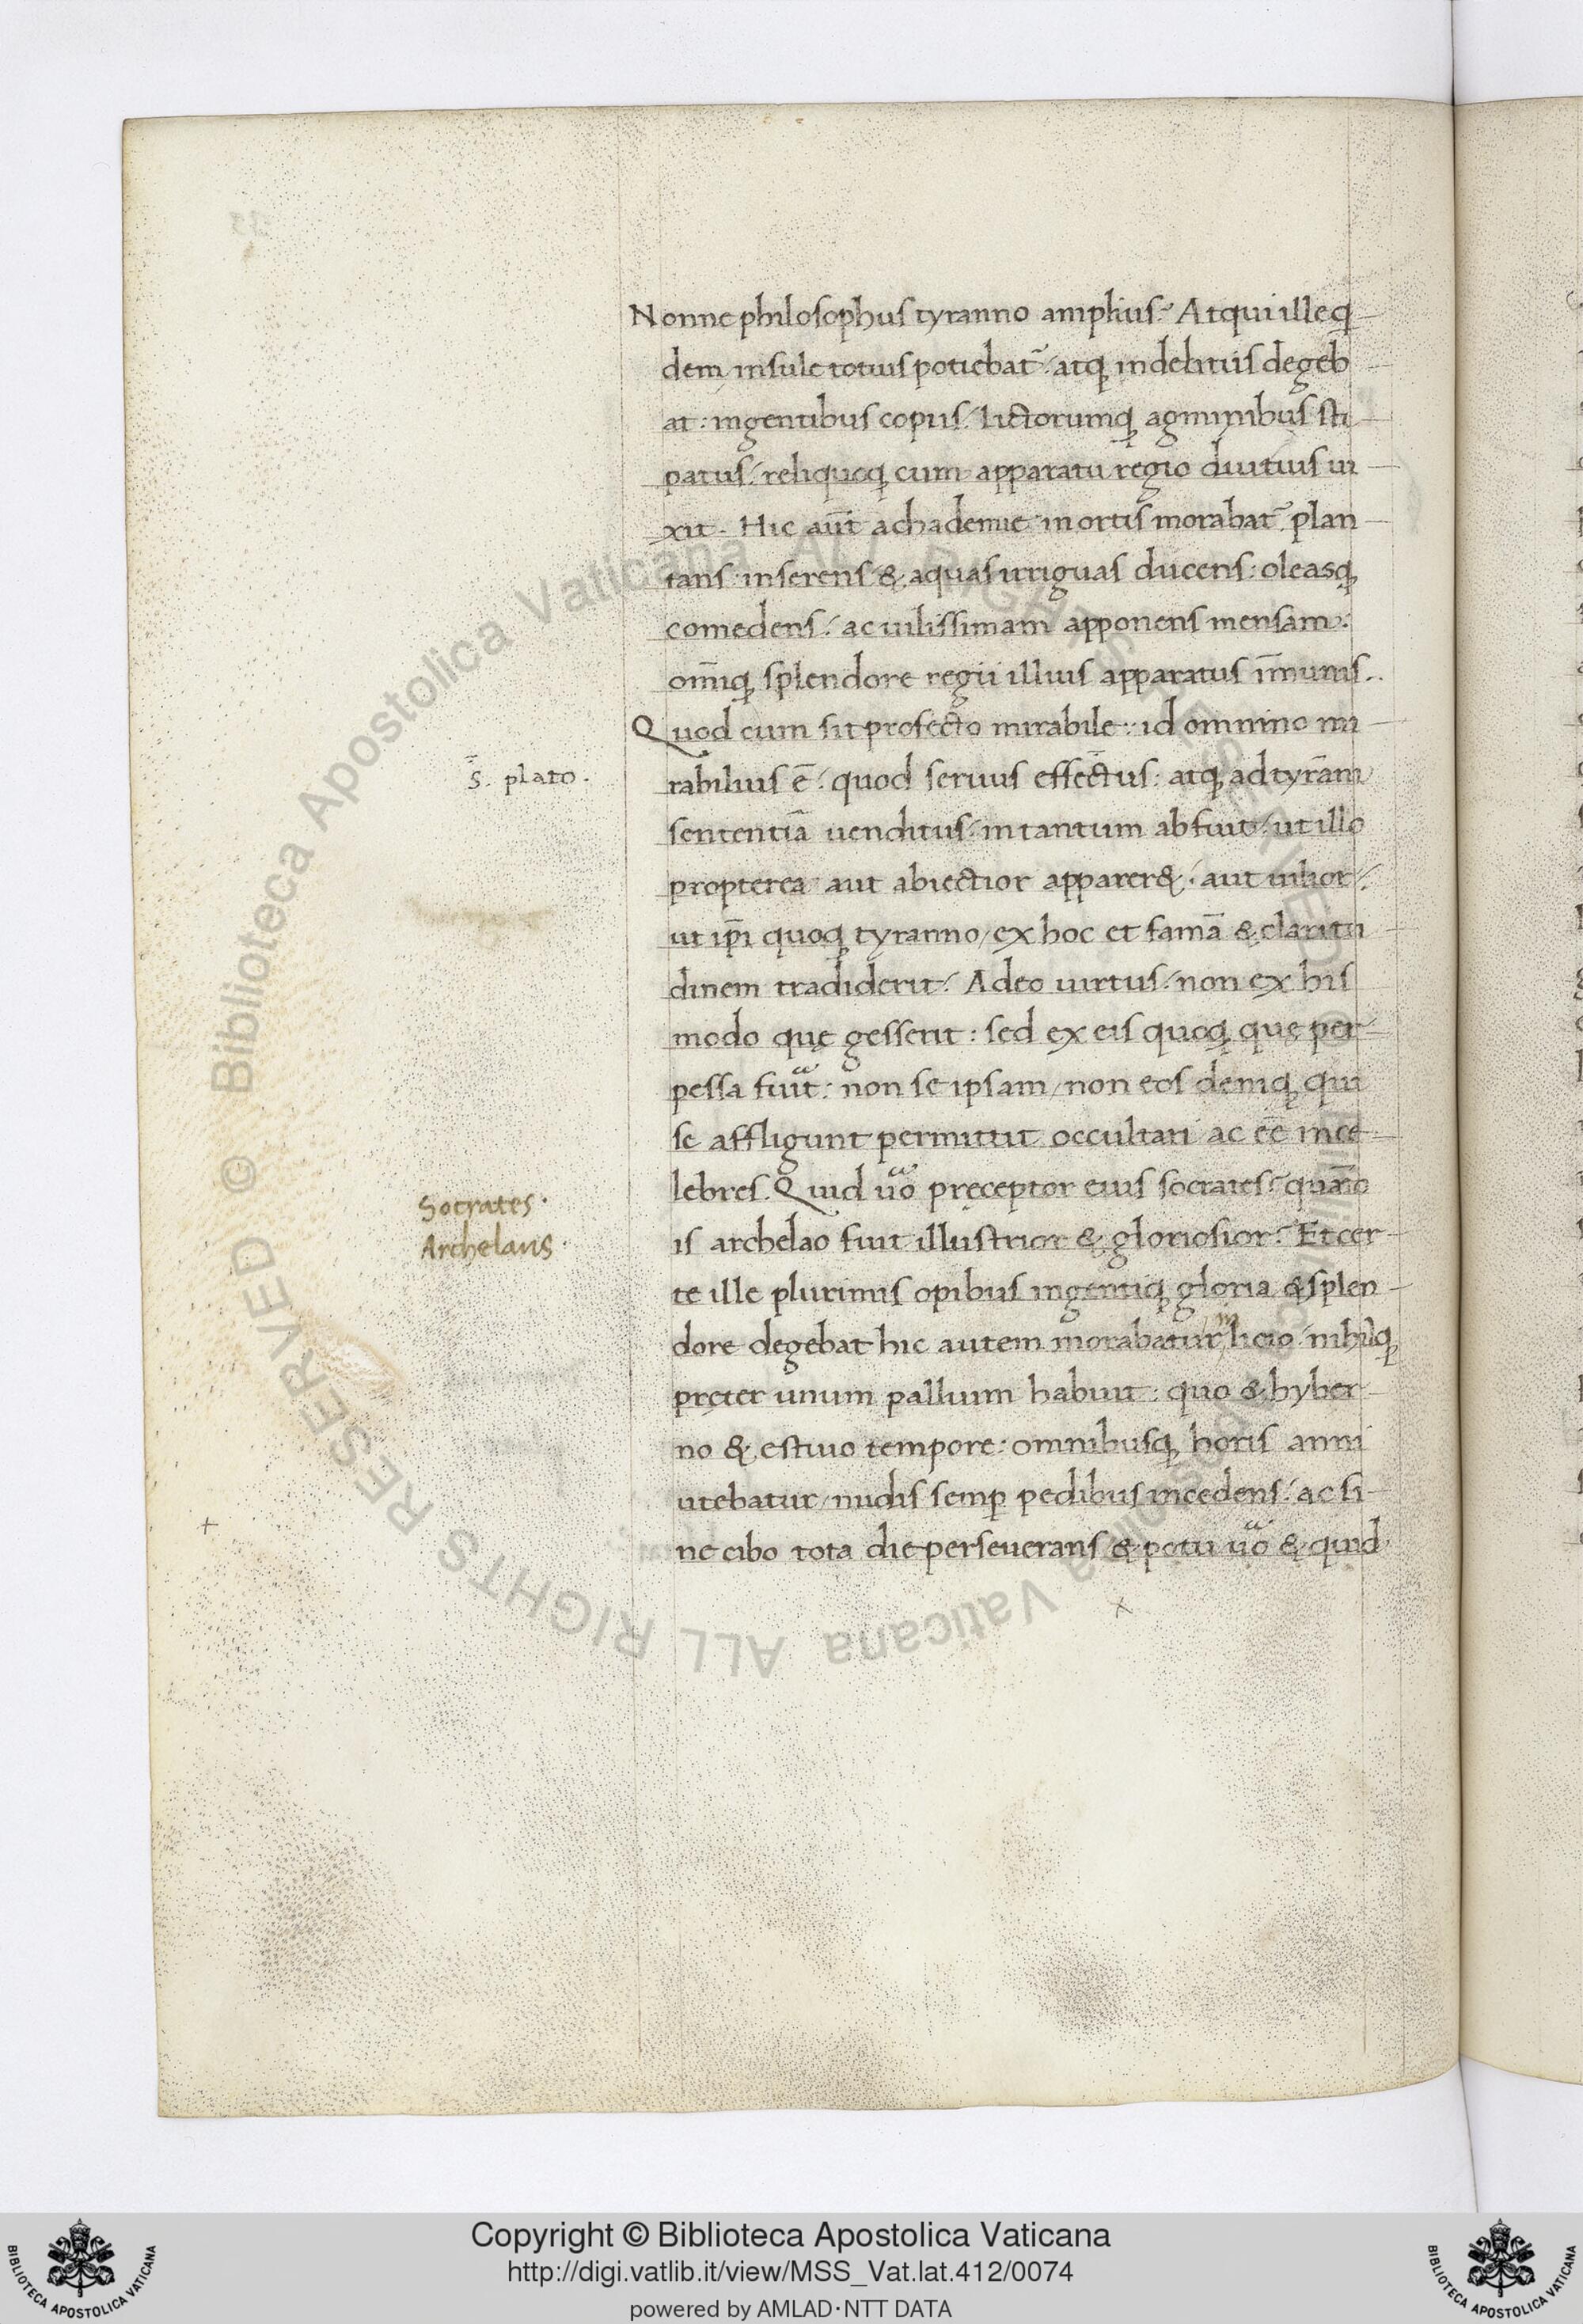 Nonne philosophus tyranno amplius? Atqui ille q̃
dem insule totius potiebat᷑: atq; in delitiis degeb
at: ingentibus copiis / lictorumq; agminibus sti
patus / reliquoq; cum apparatu regio diutius ui
xit. Hic aut̃ achademie in ortis morabat᷑ plan
tans: inserens & aquas irriguas ducens: oleasq;
comedens / ac uilissimam apponens mensam:
om̃iq; splendore regii illius apparatus im̃unis.
Quod cum sit profecto mirabile: id omnino mi
s̃. plato.
rabilius ẽ: quod seruus effectus: atq; ad tyrãni
sententiã uenditus / in tantum abfuit / ut illo
propterea aut abiectior apparer& · aut uilior /
ut ip̃i quoq; tyranno / ex hoc et famã & claritu
dinem tradiderit / Adeo uirtus / non ex his
modo quę gesserit: sed ex eis quoq; quę per
pessa fuit̃: non se ipsam / non eos deniq; qui
se affligunt permittit occultari ac eẽ ince
lebres. Quid ũo pręceptor eius socrates / quãto
Socrates ·
Archelaus ·
is archelao fuit illustrior & gloriosior? Et cer
te ille plurimis opibus ingentiq; gloria & splen
dore degebat hic autem morabatur in licio / nihilq;
pręter unum pallium habuit: quo & hyber
no & estiuo tempore: omnibusq; horis anni
utebatur / nudis semp pedibus incedens / ac si
ne cibo tota die perseuerans & potu ũo & quid
© Biblioteca Apostolica Vaticana ALL RIGHTS RESERVED © Biblioteca Apostolica Vaticana ALL RIGHTS RESERVED
Copyright © Biblioteca Apostolica Vaticana
http://digi.vatlib.it/view/MSS_Vat.lat.412/0074
powered by AMLAD·NTT DATA
BIBLIOTECA APOSTOLICA VATICANA
BIBLIOTECA APOSTOLICA VATICANA